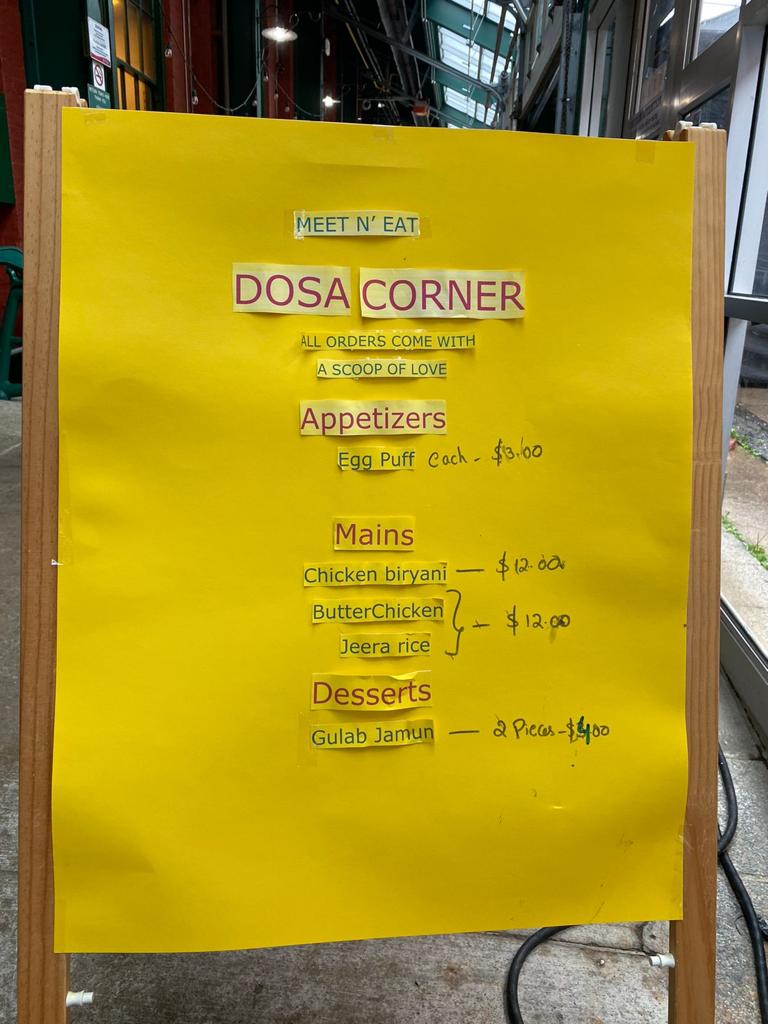 MEET N' EAT
DOSA CORNER
ALL ORDERS COME WITH
A SCOOP OF LOVE
Appetizers
Egg Puff each - $3.00
Mains
Chicken biryani — $12.00
ButterChicken
Jeera rice } - $12.00
Desserts
Gulab Jamun — 2 Pieces - $4.00